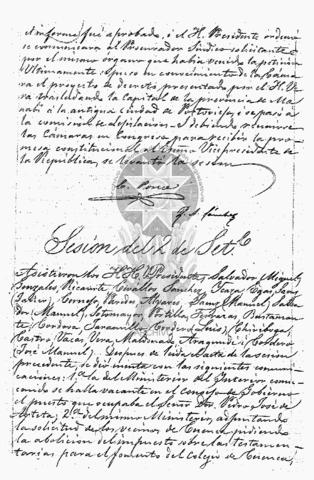 el informe fué aprobado, i el H. Presidente ordenó
se comunicara al Procurador Síndico solicitante
por el mismo órgano que había venido la petición
Ultimamente se puso en conocimiento de la Cáma-
ra el proyecto de decreto presentado por el H. Ve-
ra trasladando la capital de la provincia de Ma-
nabí a la antigua ciudad de Portoviejo, i se pasó a
la comisión de Lejislación. I debiendo reunirse
las Cámaras en Congreso para recibir la pro-
mesa constitucional al Vicepresidente de
la República, se levantó la sesión
Ponce
Sesión del 2 de Set.e
Asistieron los H.H. Presidente, Salvador (Miguel),
Gonzales, Ricaurte, Cevallos, Sanchez,
Cornejo, Alvares, Saenz (Manuel), Salva-
dor (Manuel), Sotomayor, Portilla, Bustaman-
te, Cordova, Jaramillo, Cordero (Luis), Chiriboga,
Castro, Vacas, Vera, Maldonado, Aragundi i Cordero
(José Manuel). Despues de leida el acta de la sesion
precedente se dio cuenta con las siguientes comuni-
caciones: 1.a del Ministerio del Interior comu-
nicando se halla vacante en el Consejo de Gobierno
el puesto que ocupaba el señor Dor. Pedro José de
Arteta; 2.a del mismo Ministerio, adjuntando
la solicitud de los vecinos de Cuenca pidiendo
la abolicion del impuesto sobre las testamen-
tarías para el fomento del Colegio de Cuenca;